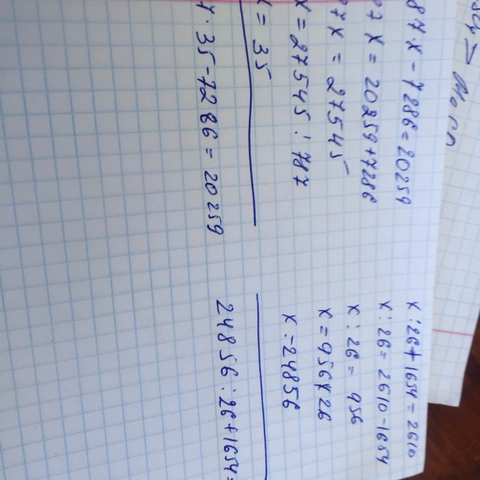 87·x-7286=20259
87x=20259+7286
87x=27545
x=27545:787
x=35
7·35-7286=20259
x:26+1654=2610
x:26=2610-1654
x:26=956
x=956×26
x=24856
24856:26+1654=